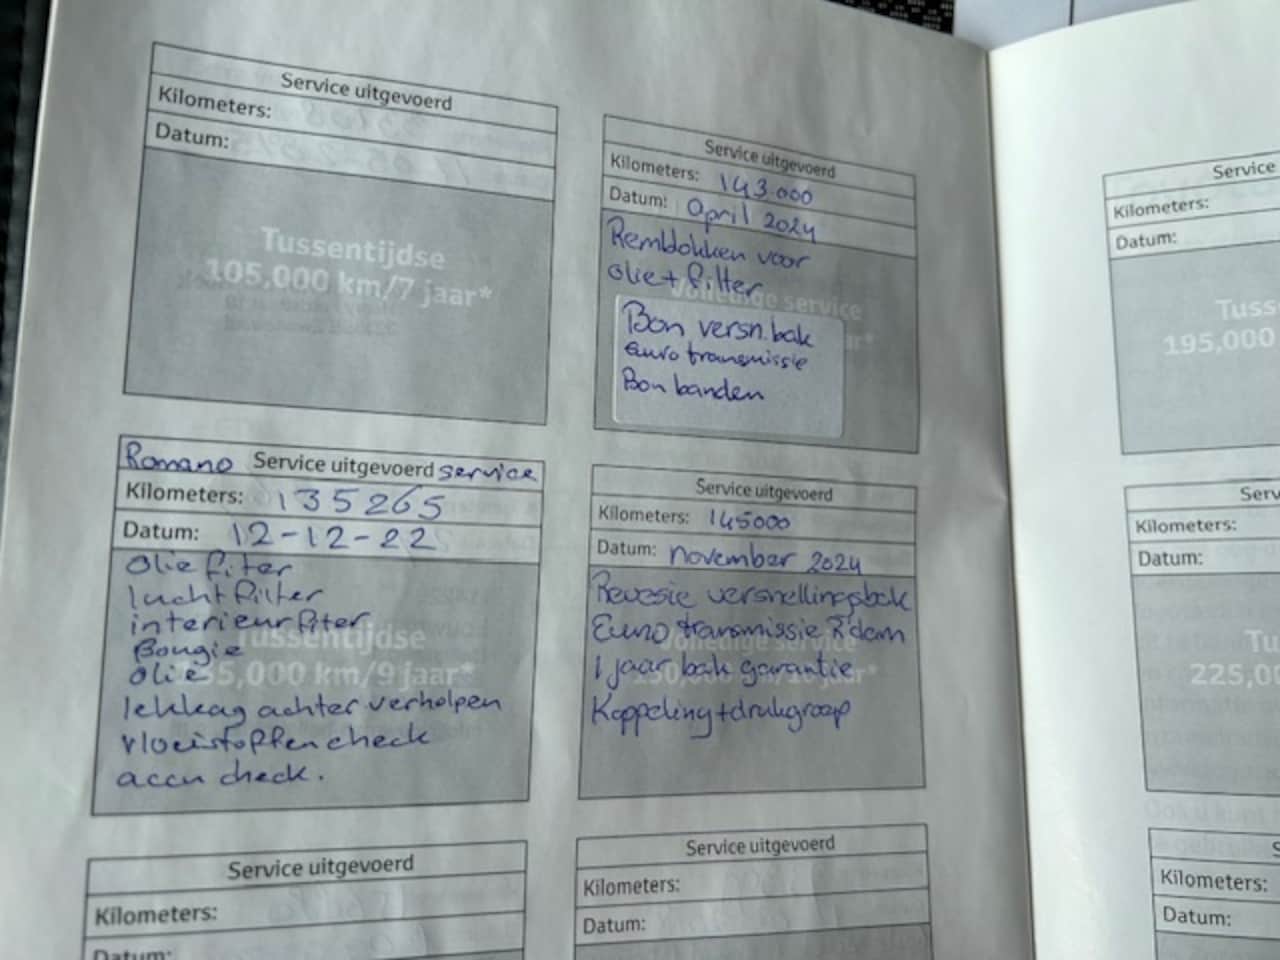 Service uitgevoerd
Kilometers:
Datum:
Tussentijdse
105,000 km/7 jaar*
Service uitgevoerd
Kilometers: 143.000
Datum: April 2024
Remblokken voor
olie + filter
Volledige service
Bon versn. bak
Euro transmissie
Bon banden
Romano Service uitgevoerd service
Kilometers: 135265
Datum: 12-12-22
Olie fiter
luchtfilter
interieurfiter
Tussentijdse
Bougie
olie
35,000 km/9 jaar*
lekkag achter verholpen
vloeistoffen check
accu check.
Service uitgevoerd
Kilometers: 145000
Datum: november 2024
Revesie versnellingsbak
Euro transmissie R'dam
Volledige service
1 jaar bak garantie
Koppeling + drukgroep
Service uitgevoerd
Kilometers:
Datum:
Service uitgevoerd
Kilometers:
Datum:
Service
Kilometers:
Datum:
Tuss
195,000
Serv
Kilometers:
Datum:
Tu
225,00
S
Kilometers:
Datum: